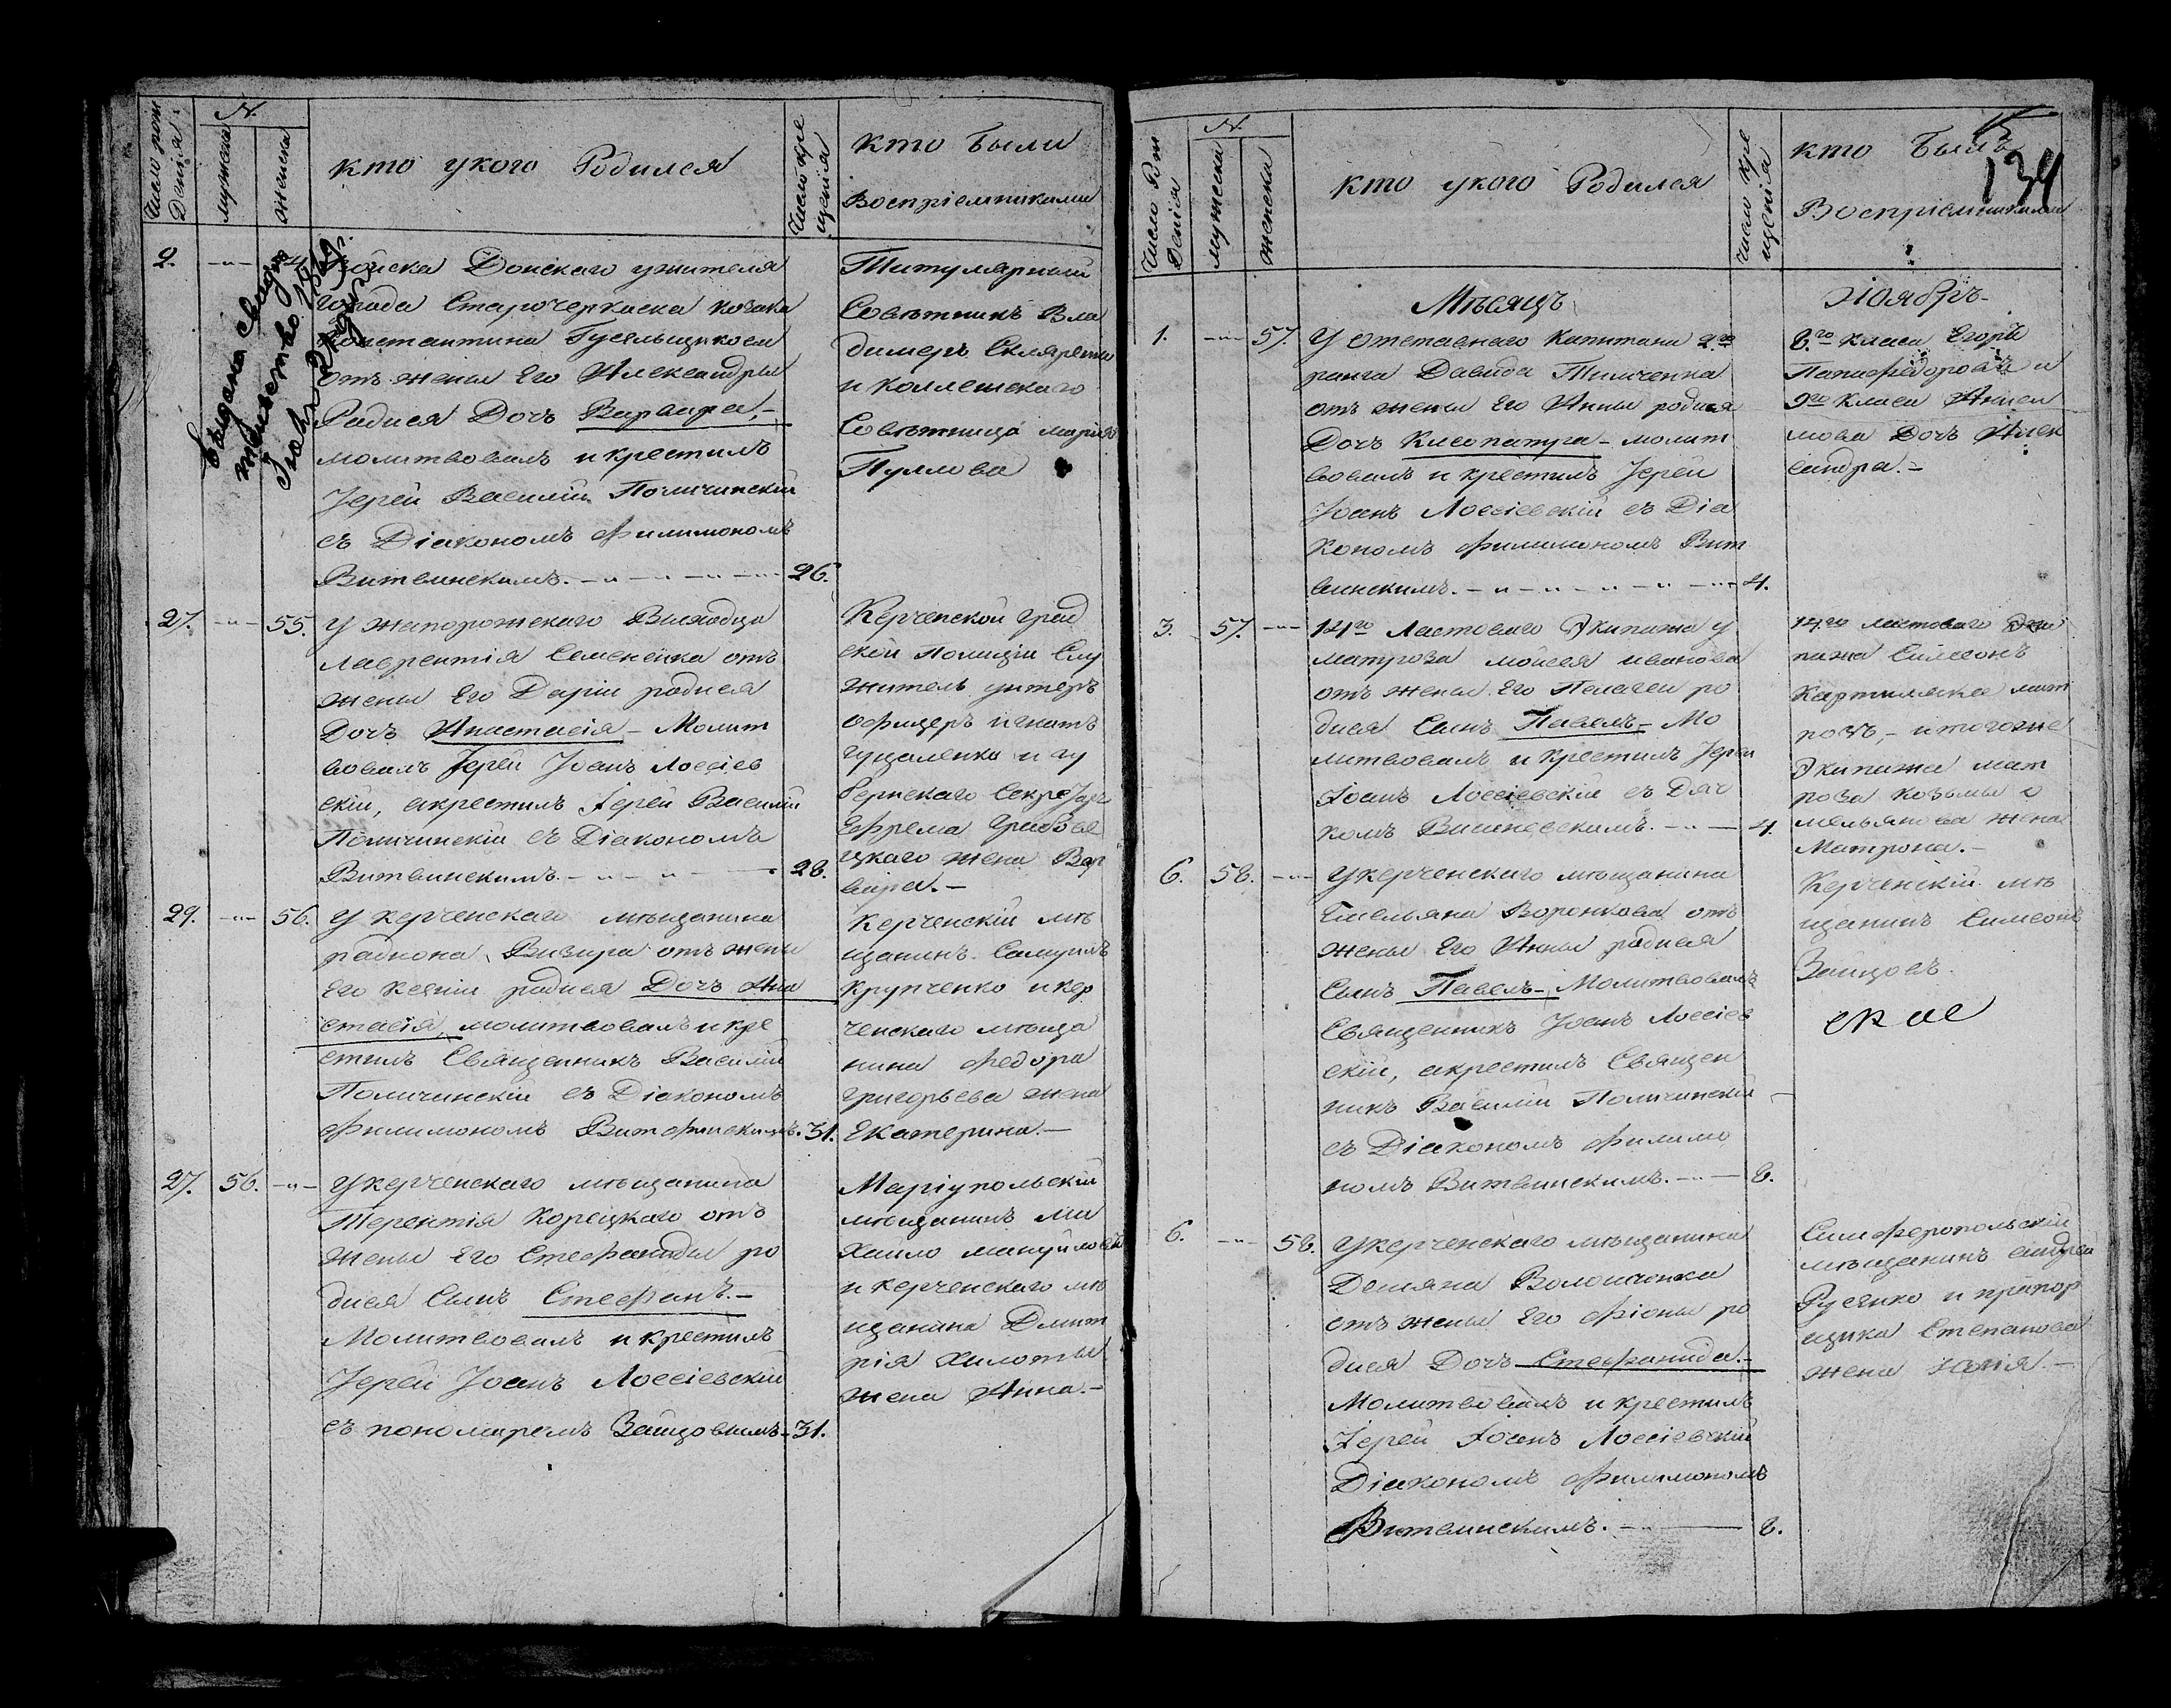 Число рож
денія
N.
мужеска
женска
кто укого Родился
Число кре
щенія
кто Были
Воспріемниками
2.
Войска Донскаго ужителя
Города Старочеркаска козака
Константина Гусельщикова
отъ жены Его Александры
Родися Дочь Варвара,-
молитвовалъ и крестилъ
Іерей Василій Поличинскій
съ Діакономъ Филимономъ
Витвинскимъ. 26.
Титулярный
Советникъ Вла
димеръ Скляренко
и коллежскаго
Советница марія
Пуллова
Выдано свидѣ
тельство
27. 55. У Жапорожскаго Выходца
Лаврентія Семененка отъ
жены Его Даріи родися
Дочь Анастасія - Молит
вовалъ Іерей Іоанъ Лоссіев
скій, акрестилъ Іерей Василій
Поличинскій съ Діакономъ
Витвинскимъ. 28.
Керченской град
ской полиціи Слу
житель унтеръ
офицеръ игнатъ
гуцаленко и гу
бернскаго Секретаря
Ефрема
цкаго жена Вар
вара.-
29. 56. У керченскаго мѣщанина
радиона Визира отъ жены
Его Ксеніи родися Дочь Ана
стасія, молитвовалъ и кре
стилъ Священникъ Василій
Поличинскій съ Діакономъ
Филимономъ Витфинскимъ. 31.
Керченскій мѣ
щанинъ Самуилъ
Крупченко и кер
ченскаго мѣща
нина Федора
григорьева жена
Екатерина.-
27. 56. Укерченскаго мѣщанина
Терентія Корецкаго отъ
жены Его Стефаниды ро
дися Сынъ Стефанъ.-
Молитвовалъ и крестилъ
Іерей Іоанъ Лоссіевскій
съ пономаремъ Зайцовымъ 31.
Маріупольскій
мѣщанинъ Ми
хаило мануйловъ
и керченскаго мѣ
щанина Дмит
рія Хилоты
жена Анна.-
Число Рож
денія
N.
мужеска
женска
кто укого Родился
Число кре
щенія
кто Былъ
Воспріемниками
134
Мѣсяцъ
Ноябрь
1. 57. У отставнаго Капитана 2го
ранга Давида Тимченка
отъ жены Его Анны родися
Дочь Клеопатра - молит
вовалъ и крестилъ Іерей
Іоанъ Лоссіевскій съ Діа
кономъ Филимономъ Вит
винскимъ. 4.
8го класса Егоръ
Папафедоровъ и
9го класса
мова Дочь Алек
сандра.-
3. 57. 14го Ластоваго Экипажа у
матроза мойсея иванова
отъ жены Его Пелагеи ро
дися Сынъ Павелъ - Мо
литвовалъ и крестилъ Іерей
Іоанъ Лоссіевскій съ Дяч
комъ Вишневскимъ. 4.
14го ластоваго Эки
пажа Симеонъ
мат
розъ, - и тогоже
Экипажа мат
роза козьмы е
мельянова жена
Матрона.-
6. 58. Укерченскаго мѣщанина
Емельяна Воронкова отъ
жены Его Анны родися
Сынъ Павелъ - Молитвовалъ
Священникъ Іоанъ Лоссіев
скій, акрестилъ Священ
никъ Василій Поличинскій
съ Діакономъ Филимо
номъ Витвинскимъ. 8.
Керченскій мѣ
щанинъ Симеонъ
Зайцовъ.
6. 58. Укерченскаго мѣщанина
Демяна Волошченка
отъ жены Его Фіоны ро
дися Дочь Стефанида.-
Молитвовалъ и крестилъ
Іерей Іоанъ Лоссіевскій
Діакономъ Филимономъ
Витвинскимъ. 8.
Симферопольскій
мѣщанинъ андрей
Русенко и прапор
щика Степанова
жена